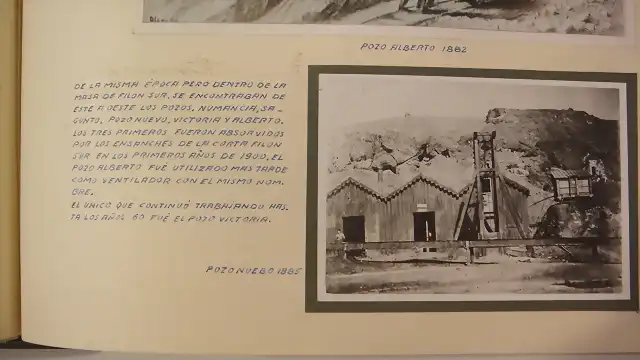 POZO ALBERTO 1882
DE LA MISMA ÉPOCA PERO DENTRO DE LA
MASA DE FILON SUR, SE ENCONTRABAN DE
ESTE A OESTE LOS POZOS, NUMANCIA, SA-
GUNTO, POZO NUEVO, VICTORIA Y ALBERTO.
LOS TRES PRIMEROS FUERON ABSORVIDOS
POR LOS ENSANCHES DE LA CORTA FILON
SUR EN LOS PRIMEROS AÑOS DE 1900, EL
POZO ALBERTO FUÉ UTILIZADO MAS TARDE
COMO VENTILADOR CON EL MISMO NOM-
BRE.
EL UNICO QUE CONTINUÓ TRABAJANDO HAS-
TA LOS AÑOS 60 FUÉ EL POZO VICTORIA.
POZO NUEBO 1885